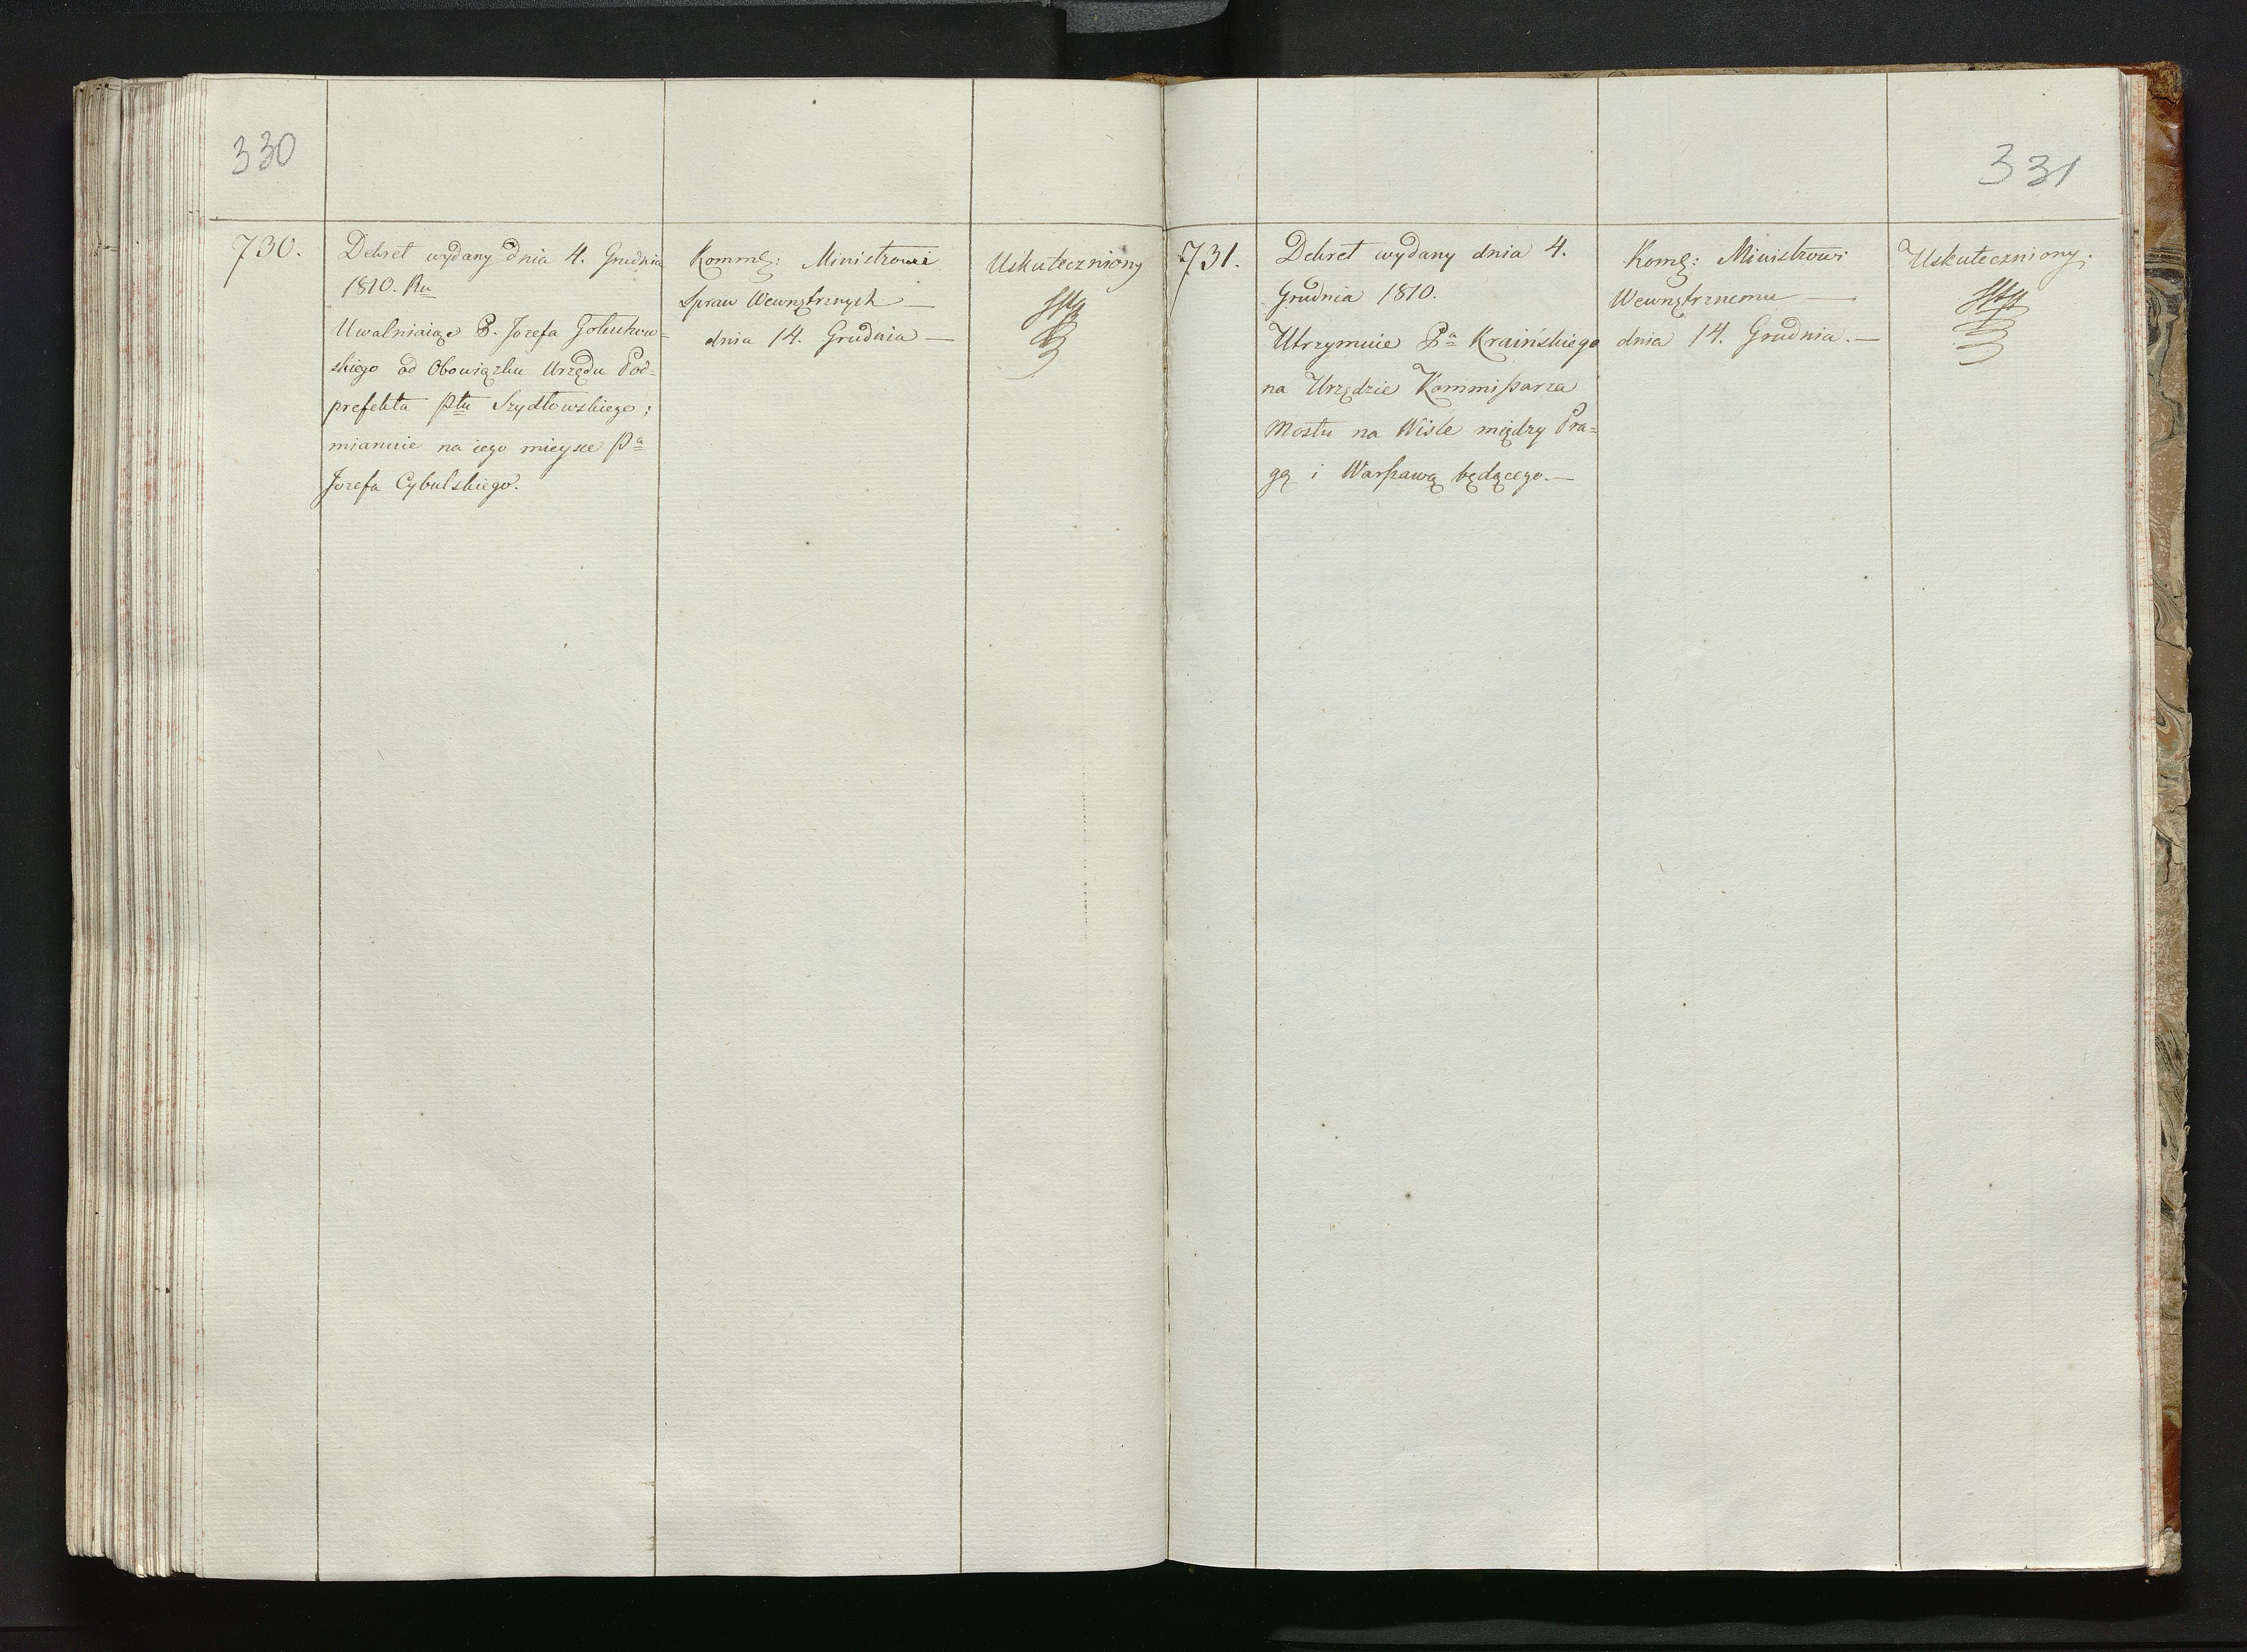 330
730.
Dekret wydany dnia 4. Grudnia
1810. Ru
Uwalniaiące P. Jozefa Gołuchow=
skiego od Obowiązku Urzędu Pod=
prefekta Ptu Szydłowskiego;
mianuie na iego mieysce Pa
Jozefa Cybulskiego.
Ministrowi
Spraw Wewnętrznych —
dnia 14. Grudnia —
Uskuteczniony
331
731.
Dekret wydany dnia 4.
Grudnia 1810.
Utrzymuie Pa Kraińskiego
na Urzędzie Kommißarza
Mostu na Wiśle między Pra=
gą i Warßawą będącego. —
Ministrowi
Wewnętrznemu —
dnia 14. Grudnia. —
Uskuteczniony.